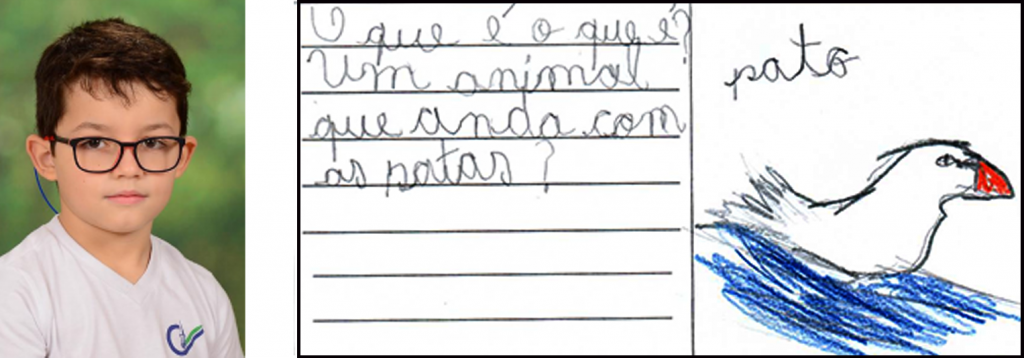 O que é o que é?
Um animal
que anda com
as patas?
pato